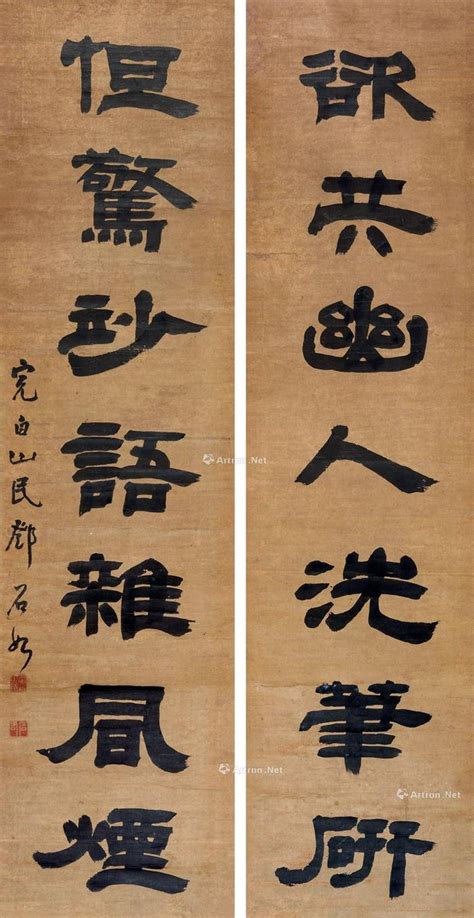 欲共幽人洗筆研
恒驚妙語雜風煙
完白山民鄧石如
Artron.Net
Artron.Net
Artron.Net
Artron.Net